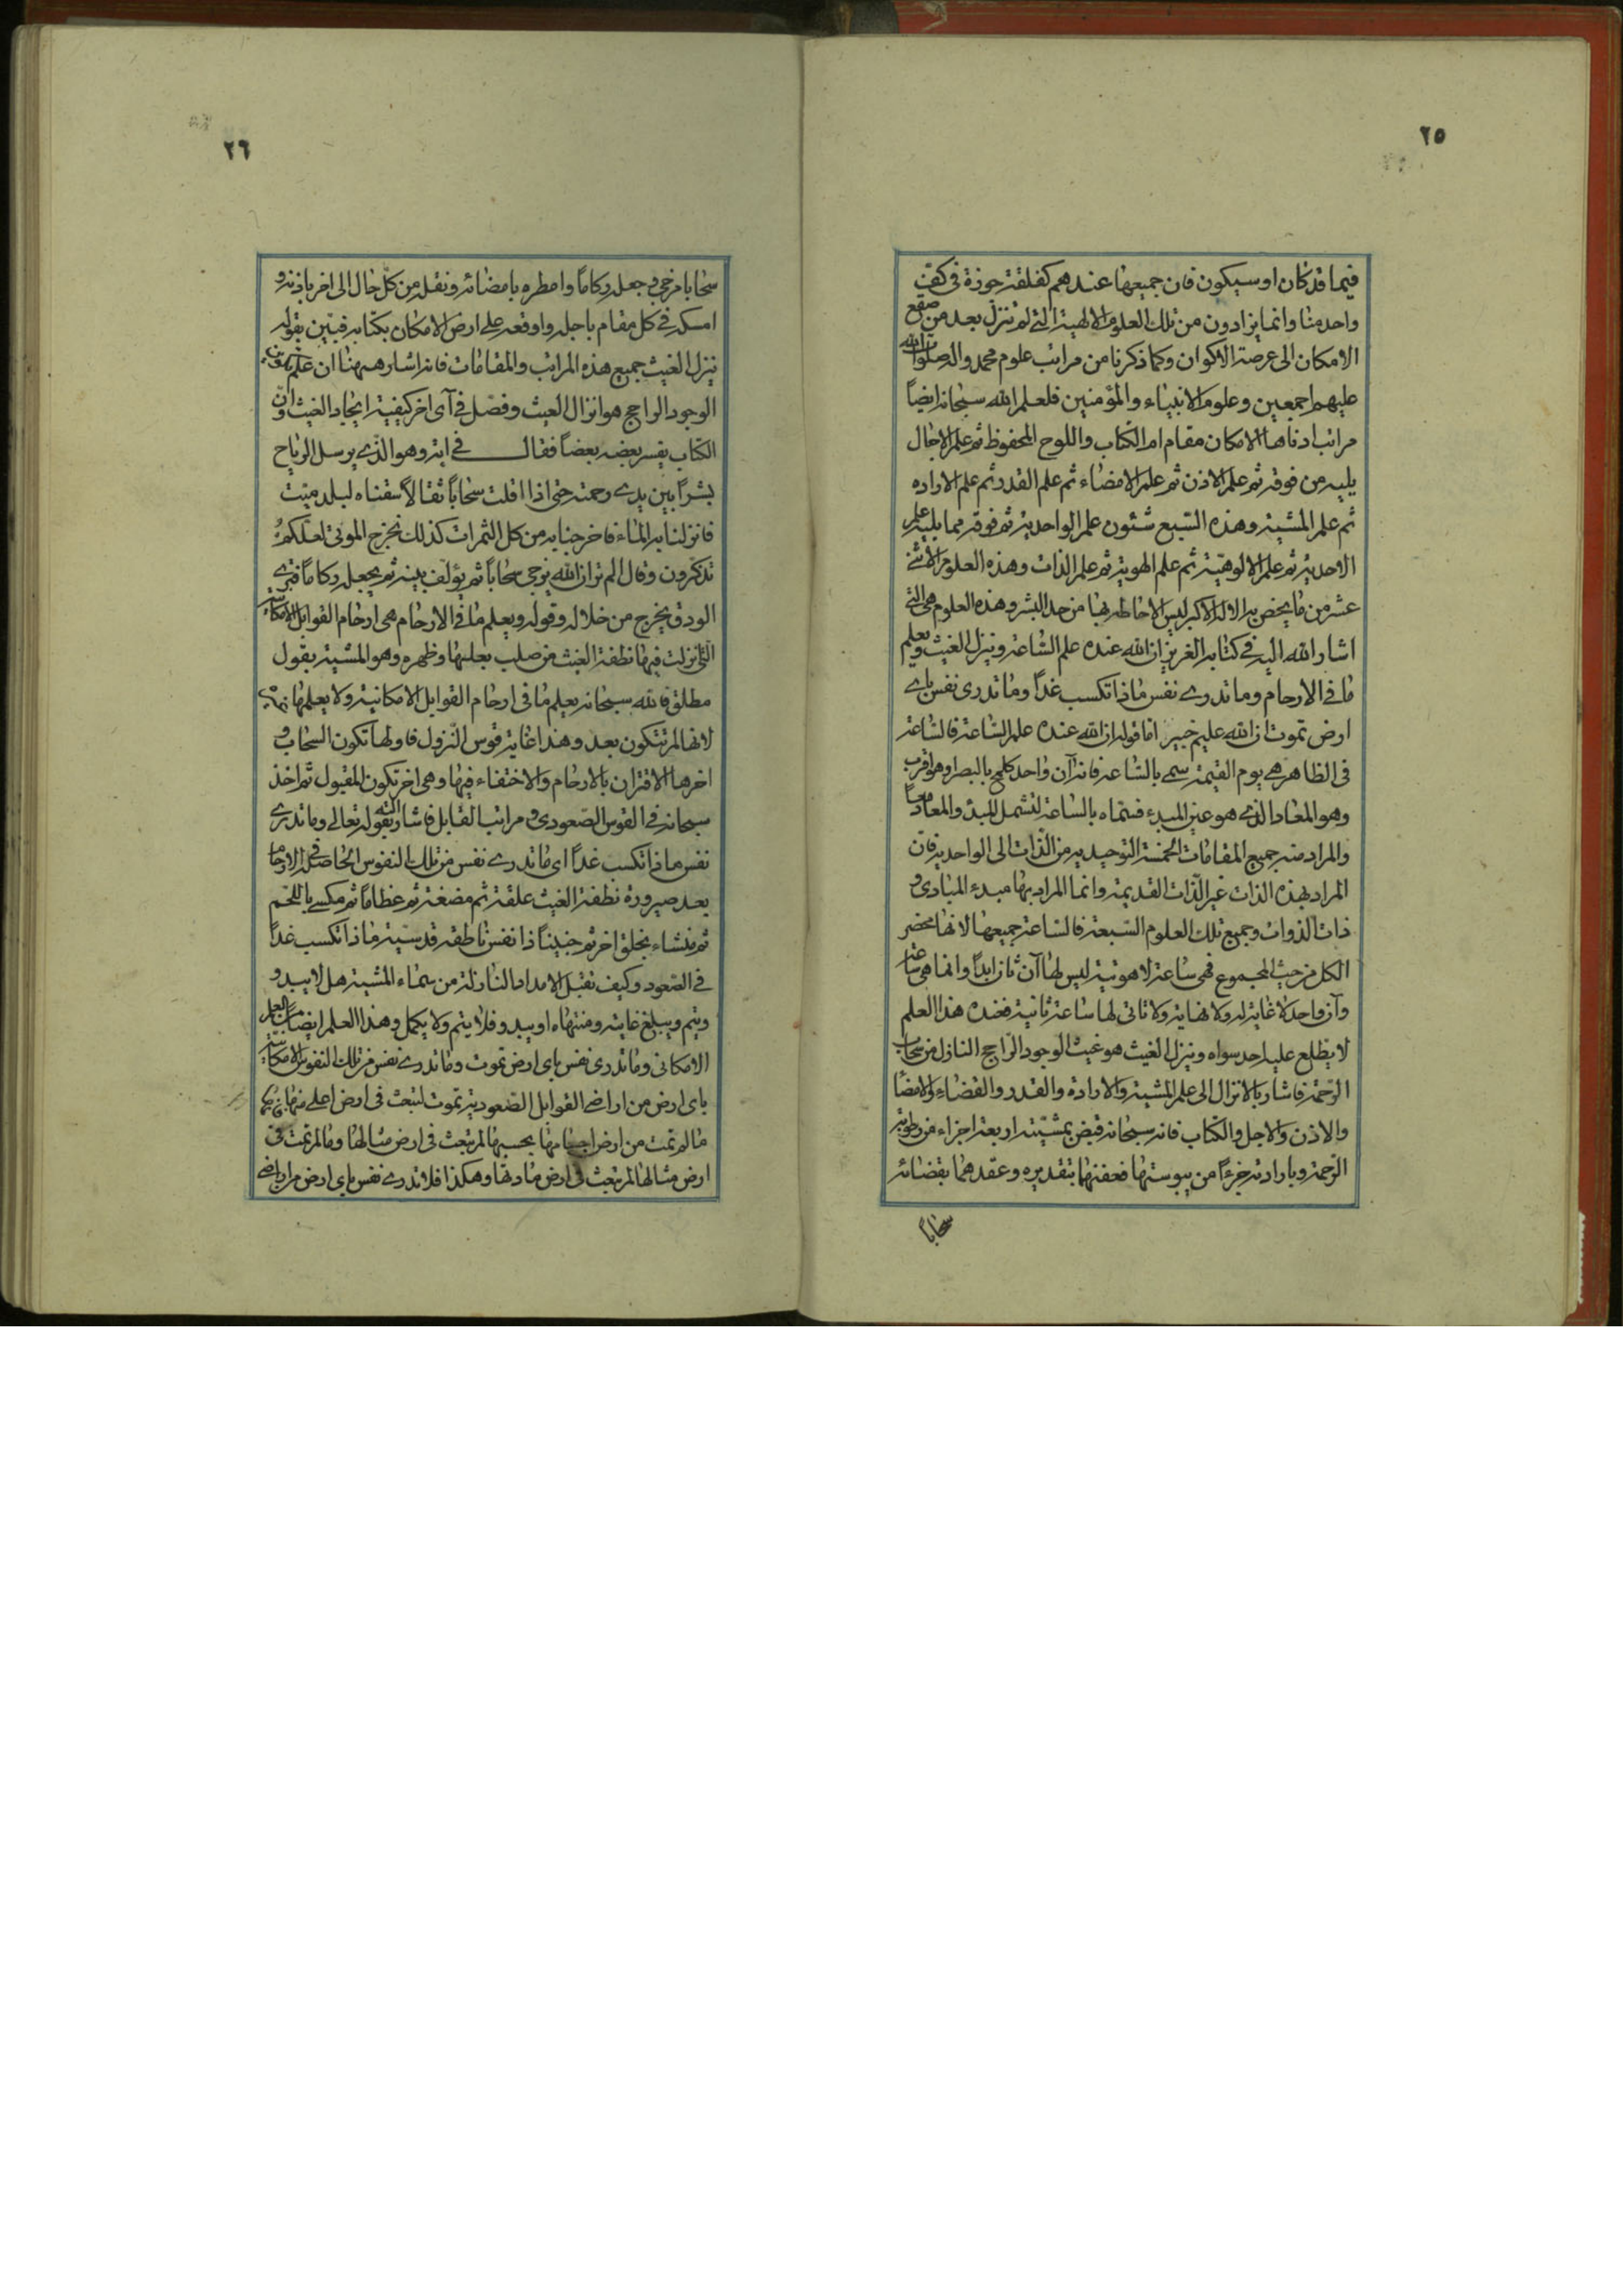 ٢٥
فيما قد كان او سيكون فان جميعها عندهم كفلقة جوزة فى كف
واحد منا وانما يزادون من تلك العلوم الالهية التى لم تنزل بعد من صقع
الامكان الى عرصة الاكوان وكما ذكرنا من مراتب علوم محمد واله صلوات الله
عليهم اجمعين وعلوم الانبياء والمؤمنين فلعلم الله سبحانه ايضاً
مراتب ادناها الامكان مقام ام الكتاب واللوح المحفوظ ثم علم الاجال
يليه من فوقه ثم علم الاذن ثم علم الامضاء ثم علم القدر ثم علم الاراده
ثم علم المشية وهذه السبع شئون علم الواحدية ثم فوقه مما يليه علم
الاحدية ثم علم الالوهية ثم علم الهوية ثم علم الذات وهذه العلوم الاثنى
عشر من ما يختص به الاله الاكبر ليس الاحاطه بها من حد البشر وهذه العلوم هى التى
اشار الله اليه فى كتابه العزيز ان الله عنده علم الساعة وينزل الغيث ويعلم
ما فى الارحام وما تدرى نفس ماذا تكسب غداً وما تدرى نفس باى
ارض تموت ان الله عليم خبير اما قوله ان الله عنده علم الساعة فالساعة
فى الظاهر هى يوم القيمة سمى بالساعة فانه آن واحد كلمح بالبصر او هو اقرب
وهو المعاد الذى هو عين المبدء فسماه بالساعة لتشمل المبدئ والمعاد معاً
والمراد منه جميع المقامات الخمسة التوحيديه من الذات الى الواحديه فان
المراد بهذه الذات غير الذات القديمة وانما المراد بها مبدء المبادى و
ذات الذوات وجميع تلك العلوم السبعة فالساعة جميعها لانها محضر
الكل من حيث المجموع فهى ساعة لاهوتية ليس لها آن ثان ابداً وانما هى ساعة
وآن واحد لا غاية له ولا نهاية ولا تاتى لها ساعة ثانية فعنده هذا العلم
لا يطلع عليه احد سواه وينزل الغيث هو غيث الوجود الراجح النازل من سحاب
الرحمة فاشار بالانزال الى علم المشية والارادة والقدر والقضاء والامضا
والاذن والاجل والكتاب فانه سبحانه قبض بمشيته اربعة اجزاء من رطوبة
الرحمة وبارادته جزءاً من يبوستها فعفنها بتقديره وعقدهما بقضائه
سحابا
٢٦
سحابا مزجى وجعله ركاماً وامطره بامضائه ونقله من كل حال الى اخر باذنه و
امسكه فى كل مقام باجله واوقعه على ارض الامكان بكتابه فبين بقوله
ينزل الغيث جميع هذه المراتب والمقامات فانه اشار ههنا ان علم
الوجود الراجح هو انزال الغيث وفصل فى آى اخر كيفية ايجاد الغيث وان
الكتاب يفسر بعضه بعضاً فقال فى اية وهو الذى يرسل الرياح
بشراً بين يدى رحمته حتى اذا اقلت سحاباً ثقالاً سقناه لبلد ميت
فانزلنا به الماء فاخرجنا به من كل الثمرات كذلك نخرج الموتى لعلكم
تذكرون وقال الم تر ان الله يزجى سحاباً ثم يؤلف بينه ثم يجعله ركاماً فترى
الودق يخرج من خلاله وقوله ويعلم ما فى الارحام هى ارحام القوابل الامكانية
التى نزلت فيها نطفة الغيث من صلب بعلها وظهره وهو المشية بقول
مطلق فالله سبحانه يعلم ما فى ارحام القوابل الامكانية ولا يعلمها
لانها لم تتكون بعد وهذا غاية قوس النزول فاولها تكون السحاب و
اخرها الاقتران بالارحام والاختفاء فيها وهى اخر تكون المقبول ثم اخذ
سبحانه فى القوس الصعودى ومراتب القابل فاشار اليه بقوله تعالى وما تدرى
نفس ماذا تكسب غداً اى ما تدرى نفس من تلك النفوس الحاصلة فى الارحام
بعد صيرورة نطفة الغيث علقة ثم مضغة ثم عظاماً ثم مكسى باللحم
ثم منشاء بخلق اخر ثم جنيناً ذا نفس ناطقه قدسية ماذا تكسب غداً
فى الصعود وكيف تقبل الامداد النازلة من سماء المشية هل لا يبدو
ويتم ويبلغ غايته ومنتهاه او يبدو فلا يتم ولا يكمل وهذا العلم ايضا من العلم
الامكانى وما تدرى نفس باى ارض تموت وما تدرى نفس من تلك النفوس الامكانية
باى ارض من اراضى القوابل الصعودية تموت لتبعث فى ارض اعلى منها
ما لم تمت من ارض اجسامها بحسبها لم تبعث فى ارض مثالها وما لم تمت فى
ارض مثالها لم تبعث فى ارض مادتها وهكذا فلا تدرى نفس باى ارض من اراضى